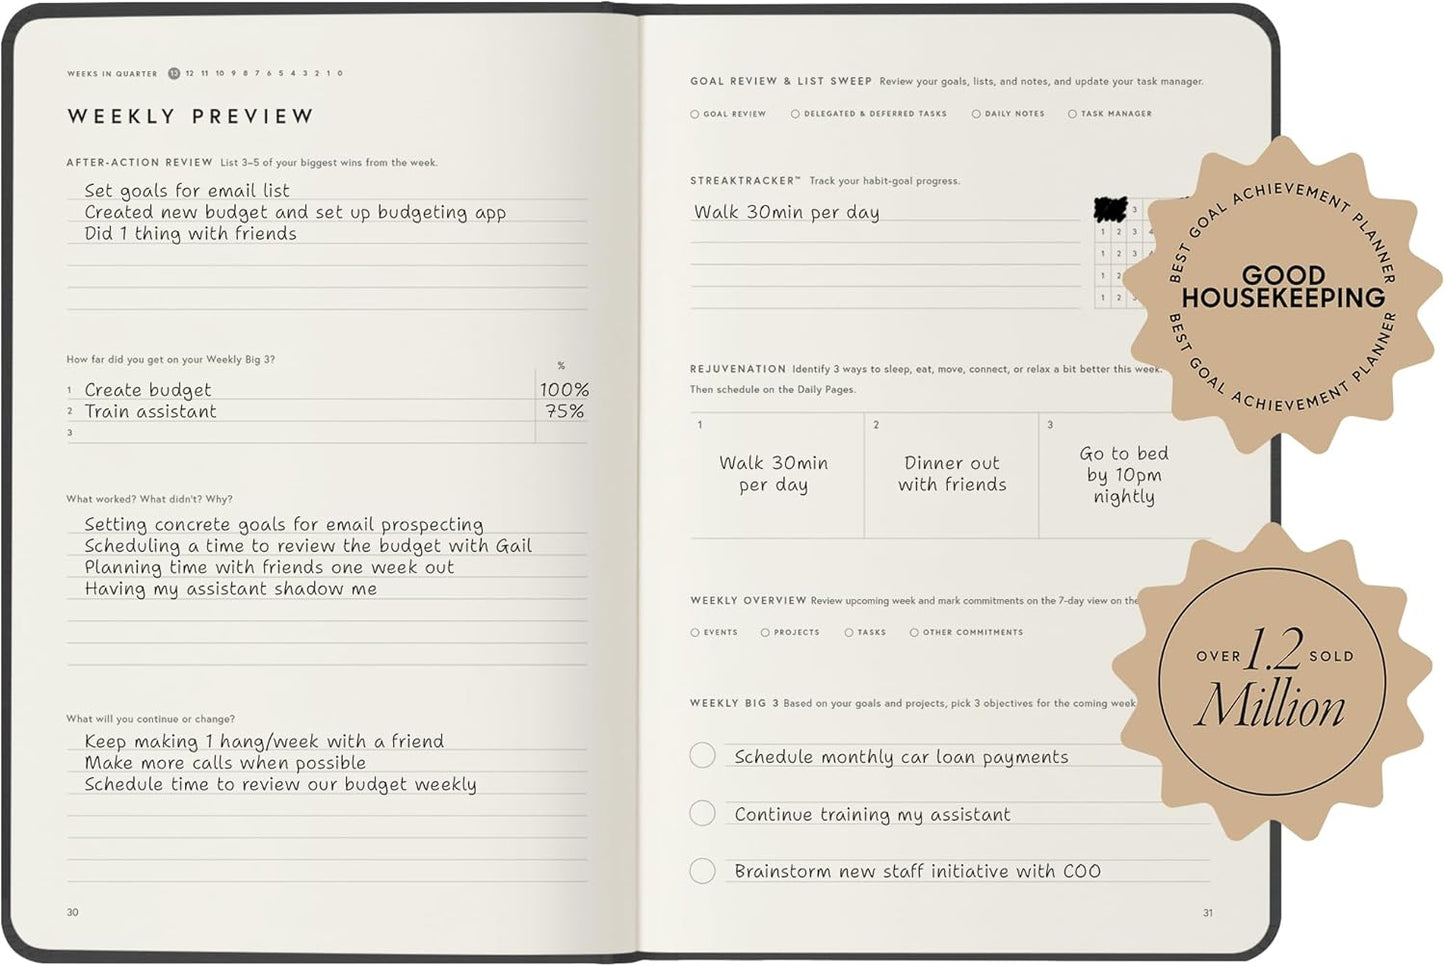 WEEKS IN QUARTER 13 12 11 10 9 8 7 6 5 4 3 2 1 0
WEEKLY PREVIEW
AFTER-ACTION REVIEW List 3–5 of your biggest wins from the week.
Set goals for email list
Created new budget and set up budgeting app
Did 1 thing with friends
How far did you get on your Weekly Big 3?
%
1 Create budget 100%
2 Train assistant 75%
3
What worked? What didn't? Why?
Setting concrete goals for email prospecting
Scheduling a time to review the budget with Gail
Planning time with friends one week out
Having my assistant shadow me
What will you continue or change?
Keep making 1 hang/week with a friend
Make more calls when possible
Schedule time to review our budget weekly
30
GOAL REVIEW & LIST SWEEP Review your goals, lists, and notes, and update your task manager.
GOAL REVIEW DELEGATED & DEFERRED TASKS DAILY NOTES TASK MANAGER
STREAKTRACKER™ Track your habit-goal progress.
Walk 30min per day
3
1 2 3 4
1 2 3
1 2
1 2
REJUVENATION Identify 3 ways to sleep, eat, move, connect, or relax a bit better this week.
Then schedule on the Daily Pages.
1
Walk 30min
per day
2
Dinner out
with friends
3
Go to bed
by 10pm
nightly
WEEKLY OVERVIEW Review upcoming week and mark commitments on the 7-day view on the
EVENTS PROJECTS TASKS OTHER COMMITMENTS
WEEKLY BIG 3 Based on your goals and projects, pick 3 objectives for the coming week
Schedule monthly car loan payments
Continue training my assistant
Brainstorm new staff initiative with COO
31
BEST GOAL ACHIEVEMENT PLANNER
GOOD
HOUSEKEEPING
BEST GOAL ACHIEVEMENT PLANNER
OVER 1.2 SOLD
Million